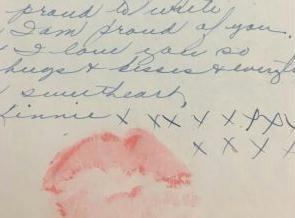 proud to write
I am proud of you.
I love you so
hugs & kisses &
sweetheart,
innie x xx x x x x x
x x x x